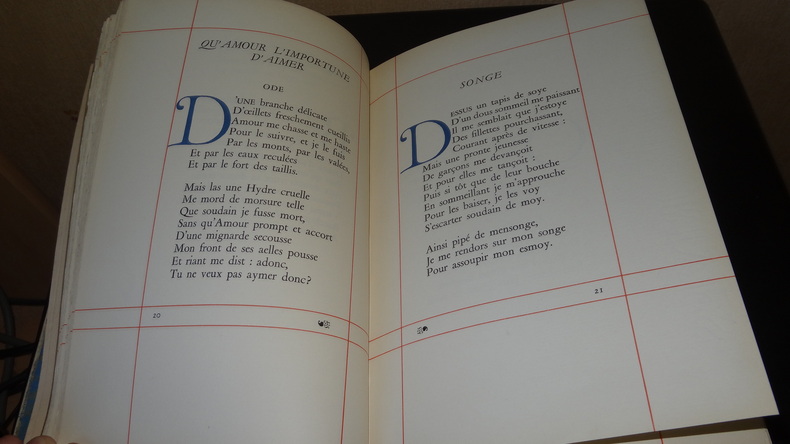 QU'AMOUR L'IMPORTUNE
D'AIMER
ODE
D'UNE branche délicate
D'œillets freschement cueillis
Amour me chasse et me haste
Pour le suivre, et je le fuis
Par les monts, par les valées,
Et par les eaux reculées
Et par le fort des taillis.
Mais las une Hydre cruelle
Me mord de morsure telle
Que soudain je fusse mort,
Sans qu'Amour prompt et accort
D'une mignarde secousse
Mon front de ses aelles pousse
Et riant me dist : adonc,
Tu ne veux pas aymer donc?
20
SONGE
DESSUS un tapis de soye
D'un dous sommeil me paissant
Il me semblait que j'estoye
Des fillettes pourchassant,
Courant après de vitesse :
Mais une pronte jeunesse
De garçons me devançoit
Et pour elles me tançoit :
Puis si tôt que de leur bouche
En sommeillant je m'approuche
Pour les baiser, je les voy
S'escarter soudain de moy.
Ainsi pipé de mensonge,
Je me rendors sur mon songe
Pour assoupir mon esmoy.
21